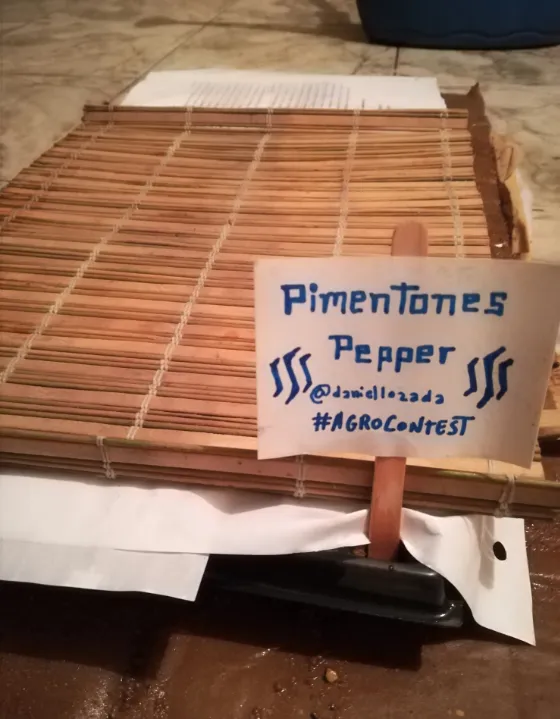 Pimentones
Pepper
@daniellozada
#AGROCONTEST